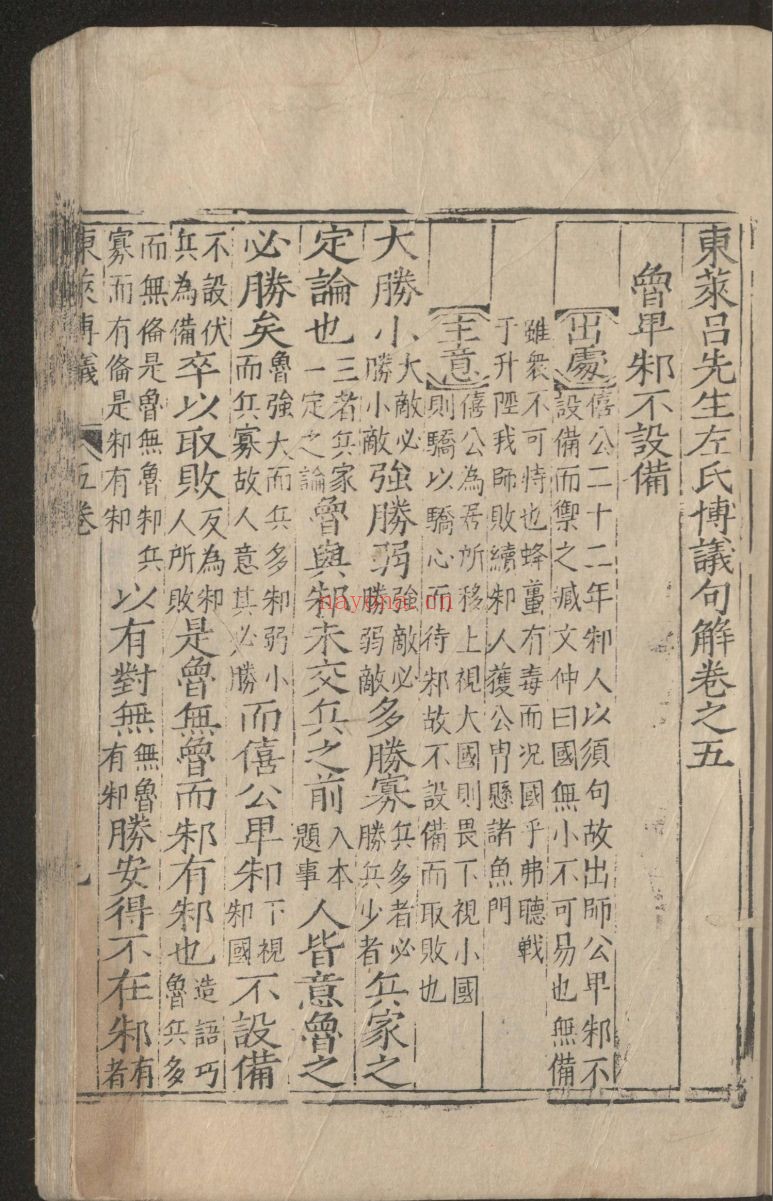 東萊呂先生左氏博議句解卷之五
魯卑邾不設備
出處 僖公二十二年邾人以須句故出師公卑邾不
設備而禦之臧文仲曰國無小不可易也無備
雖衆不可恃也蜂蠆有毒而况國乎弗聽戰
于升陘我師敗績邾人獲公冑懸諸魚門
主意 僖公為居所移上視大國則畏下視小國
則驕以驕心而待邾故不設備而取敗也
大勝小 大敵必勝小敵 強勝弱 強敵必勝弱敵 多勝寡 兵多者必勝兵少者 兵家之
定論也 三者兵家一定之論 魯與邾未交兵之前 入本題事 人皆意魯之
必勝矣 魯強大而兵多邾弱小而兵寡故人意其必勝 而僖公卑邾 下視邾國 不設備
不設伏兵為備 卒以取敗 反為邾人所敗 是魯無魯而邾有邾也 造語巧魯兵多
而無俻是魯無魯邾兵寡而有俻是邾有邾 以有對無 無魯有邾 勝安得不在邾 有者
東萊博議 五卷
nayona.cn